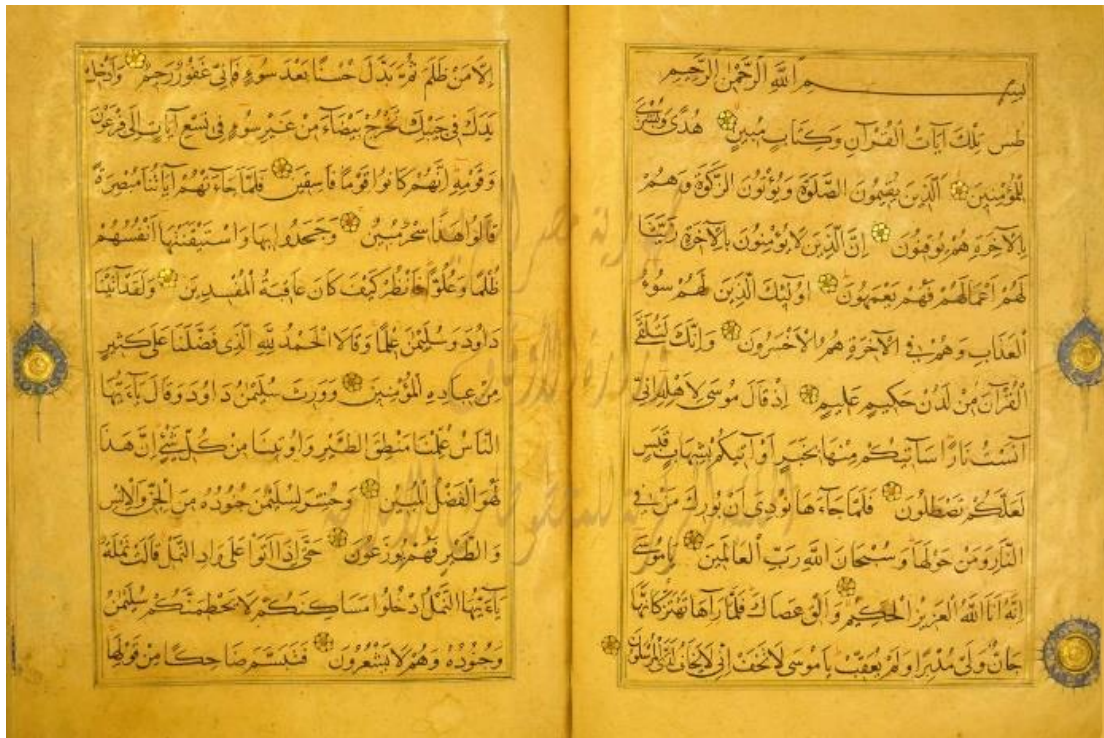 بسم الله الرحمن الرحيم
طس تلك آيات القرآن وكتاب مبين هدى وبشرى
للمؤمنين الذين يقيمون الصلوة ويؤتون الزكوة وهم
بالآخرة هم يوقنون إن الذين لا يؤمنون بالآخرة زينا
لهم أعمالهم فهم يعمهون أولئك الذين لهم سوء
العذاب وهم في الآخرة هم الأخسرون وإنك لتلقى
القرآن من لدن حكيم عليم إذ قال موسى لأهله إني
آنست نارا سآتيكم منها بخبر أو آتيكم بشهاب قبس
لعلكم تصطلون فلما جاءها نودي أن بورك من في
النار ومن حولها وسبحان الله رب العالمين يا موسى
إنه أنا الله العزيز الحكيم وألق عصاك فلما رآها تهتز كأنها
جان ولى مدبرا ولم يعقب يا موسى لا تخف إني لا يخاف لدي المرسلون
إلا من ظلم ثم بدل حسنا بعد سوء فإني غفور رحيم وأدخل
يدك في جيبك تخرج بيضاء من غير سوء في تسع آيات إلى فرعون
وقومه إنهم كانوا قوما فاسقين فلما جاءتهم آياتنا مبصرة
قالوا هذا سحر مبين وجحدوا بها واستيقنتها أنفسهم
ظلما وعلوا فانظر كيف كان عاقبة المفسدين ولقد آتينا
داود وسليمن علما وقالا الحمد لله الذي فضلنا على كثير
من عباده المؤمنين وورث سليمن داود وقال يا أيها
الناس علمنا منطق الطير وأوتينا من كل شيء إن هذا
لهو الفضل المبين وحشر لسليمن جنوده من الجن والإنس
والطير فهم يوزعون حتى إذا أتوا على واد النمل قالت نملة
يا أيها النمل ادخلوا مساكنكم لا يحطمنكم سليمن
وجنوده وهم لا يشعرون فتبسم ضاحكا من قولها